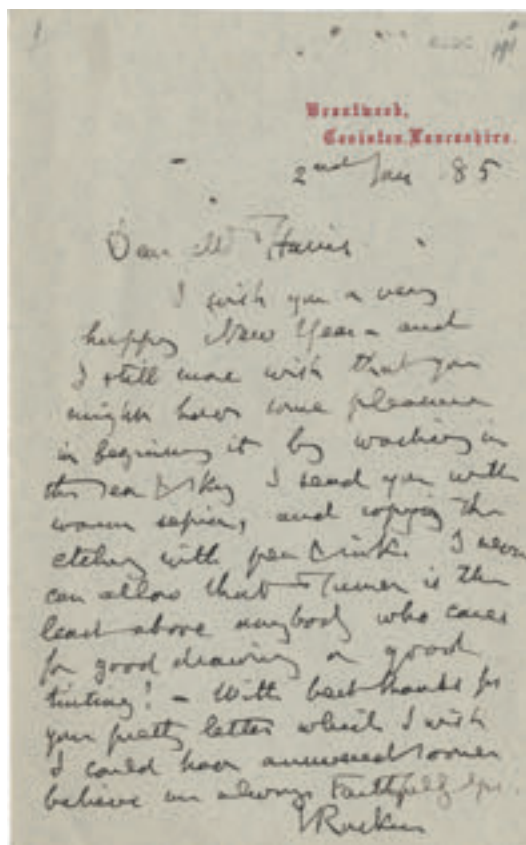 Brantwood,
Coniston, Lancashire.
2nd Jan 85
Dear Mr Harris
I wish you a very
happy New Year - and
I still more wish that you
might have some pleasure
in beginning it by washing in
this sea & sky I send you with
warm sepia, and copying the
etching with pen & ink. I never
can allow that Turner is the
least above anybody who cares
for good drawing or good
tinting! - With best thanks for
your pretty letter which I wish
I could have answered sooner
believe me always Faithfully Yrs.
JRuskin